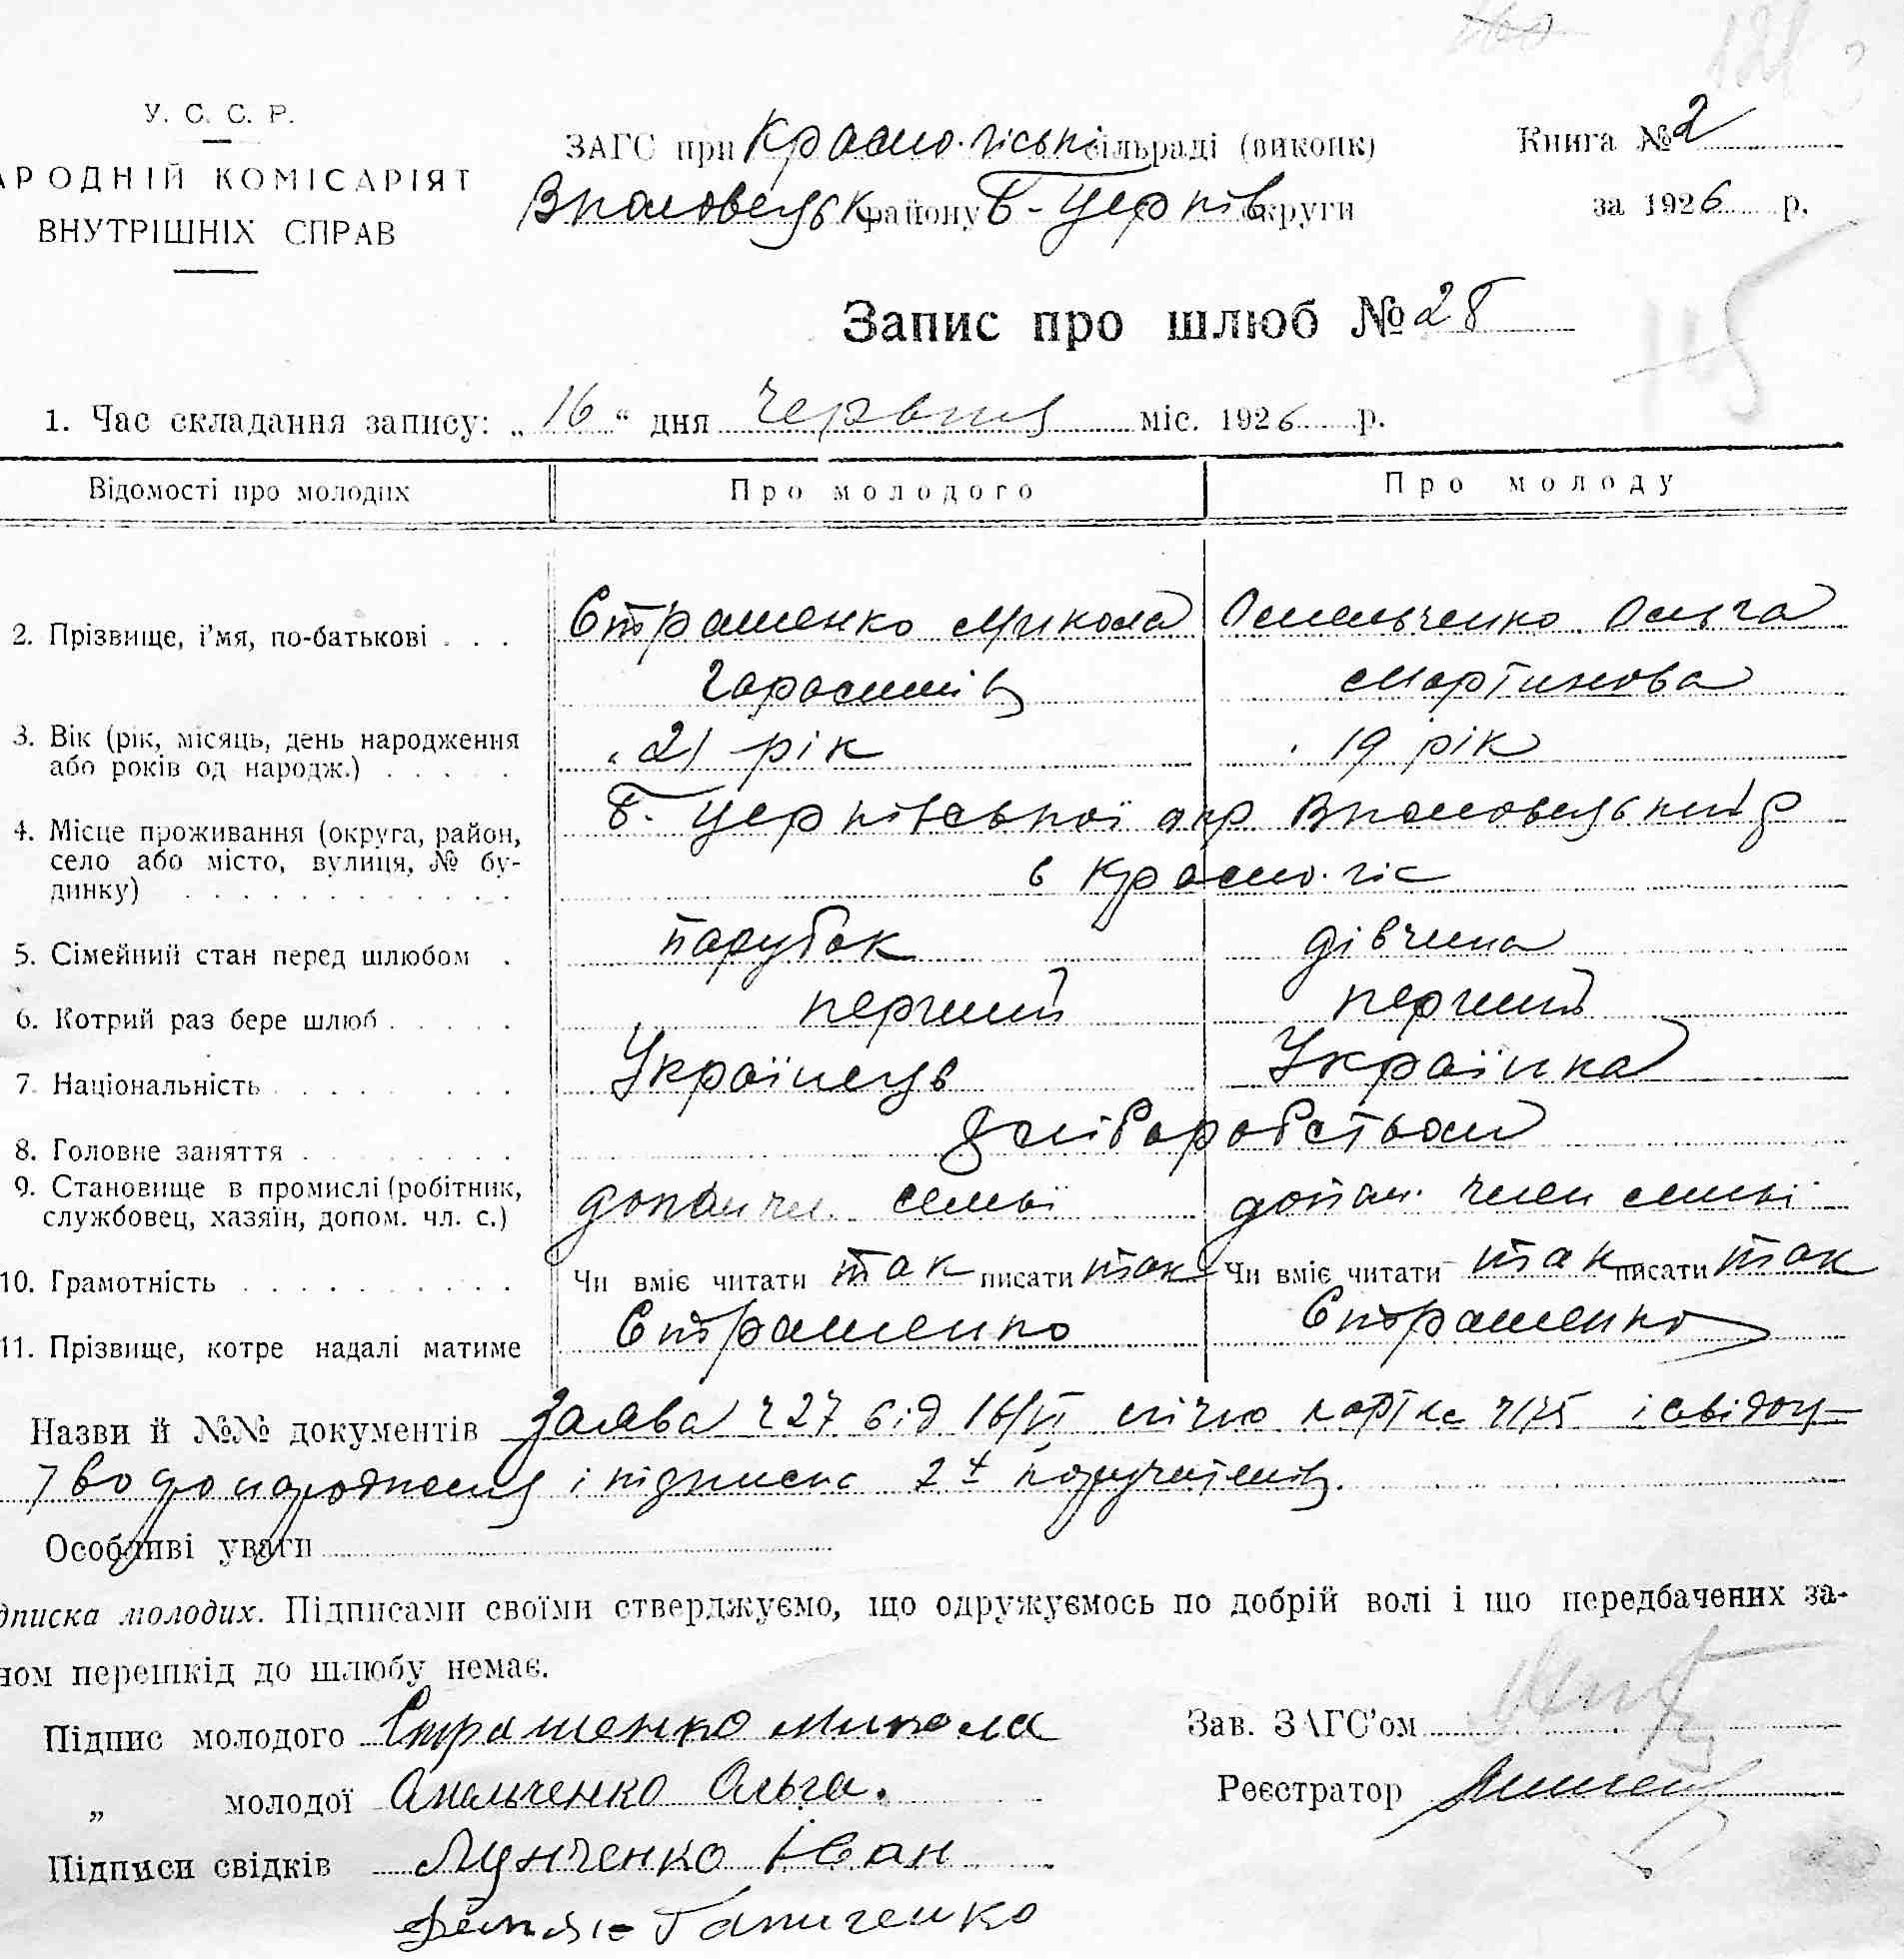 У. С. С. Р.
АРОДНІЙ КОМІСАРІЯТ
ВНУТРІШНІХ СПРАВ
ЗАГС при сільраді (виконк)
району Б-Церків округи
Книга № 2
за 1926 р.
Запис про шлюб № 28
1. Час складання запису: „16“ дня червня міс. 1926 р.
Відомості про молодих Про молодого Про молоду
2. Прізвище, і’мя, по-батькові . . . Страшенко Микола Омельченко Ольга
Гарасимів Мартинова
3. Вік (рік, місяць, день народження 21 рік 19 рік
або років од народж.) . . . . .
4. Місце проживання (округа, район, Б. Церківської окр
село або місто, вулиця, № бу-
динку) . . . . . . . . . . . .
5. Сімейний стан перед шлюбом . парубок дівчина
6. Котрий раз бере шлюб . . . . . перший перший
7. Національність . . . . . . . . Українець Українка
8. Головне заняття . . . . . . . . хліборобством
9. Становище в промислі (робітник, допом чл. семьї допом. член семьї
службовец, хазяїн, допом. чл. с.)
10. Грамотність . . . . . . . . . . Чи вміє читати так писати так Чи вміє читати так писати так
11. Прізвище, котре надалі матиме Страшенко Страшенко
Назви й №№ документів Заява ч 27 від 16/VI картка
і підписка 2х поручителів.
Особливі уваги
дписка молодих. Підписами своїми стверджуємо, що одружуємось по добрій волі і що передбачених за-
ном перешкід до шлюбу немає.
Підпис молодого Страшенко Микола
Зав. ЗАГС’ом
„ молодої Амельченко Ольга.
Реєстратор
Підписи свідків Іван